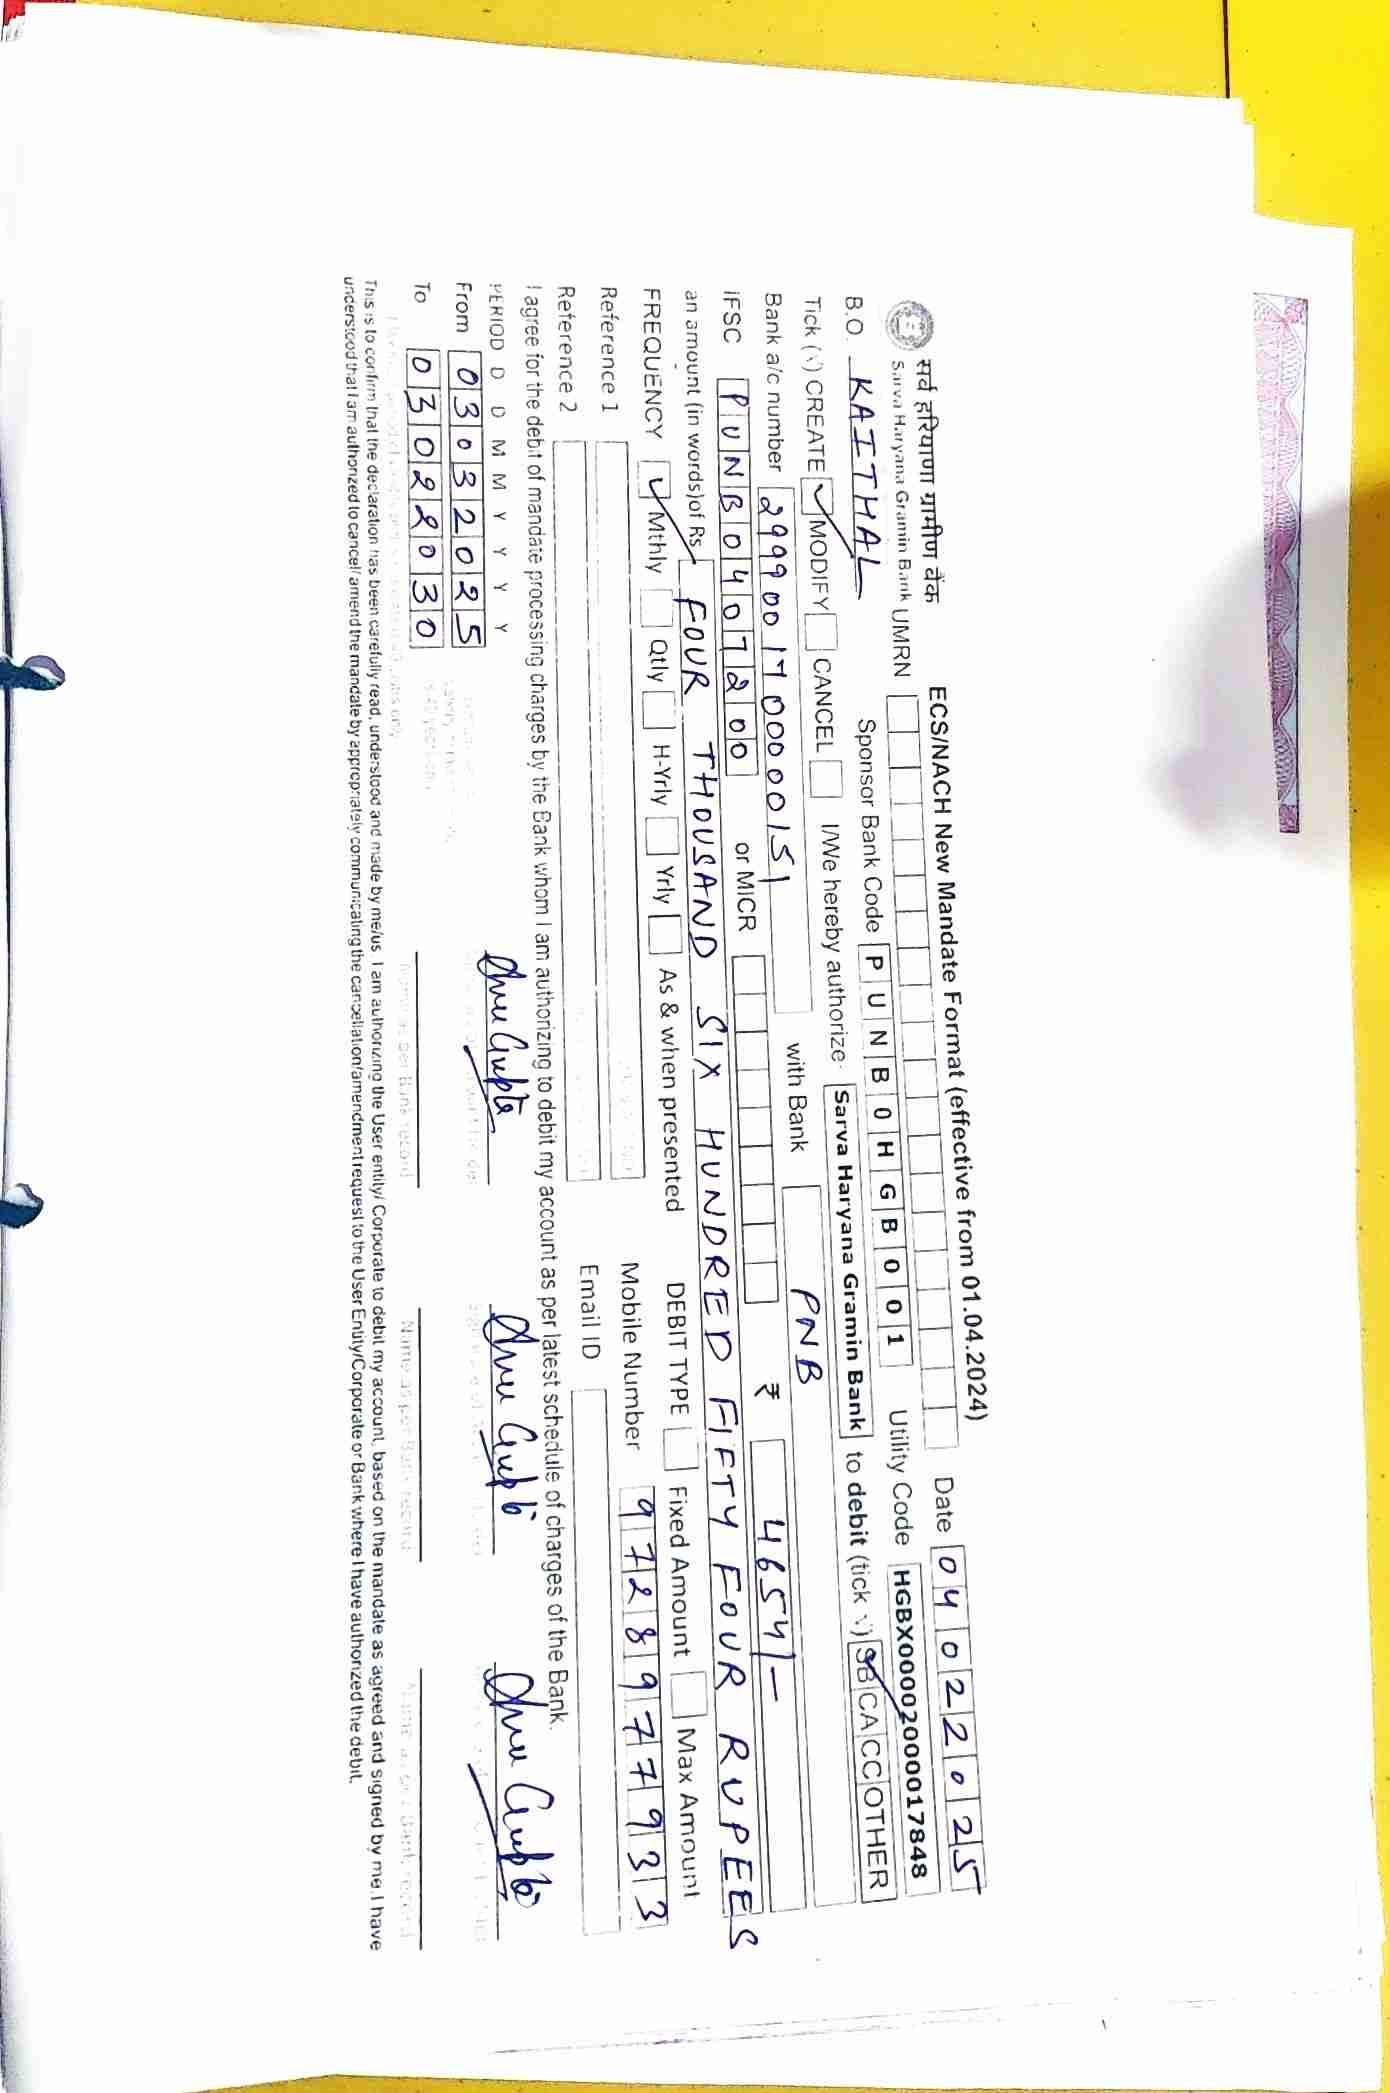 सर्व हरियाणा ग्रामीण बैंक
Sarva Haryana Gramin Bank
ECS/NACH New Mandate Format (effective from 01.04.2024)
UMRN Date 04022025
B.O. KAITHAL Sponsor Bank Code PUNB0HGB001 Utility Code HGBX00002000017848
Tick (√) CREATE ✓ MODIFY CANCEL I/We hereby authorize Sarva Haryana Gramin Bank to debit (tick √) SB CA CC OTHER
Bank a/c number 2999001700000151 with Bank PNB
IFSC PUNB0407200 or MICR ₹ 4654/-
an amount (in words) of Rs FOUR THOUSAND SIX HUNDRED FIFTY FOUR RUPEES
FREQUENCY ✓ Mthly Qtly H-Yrly Yrly As & when presented DEBIT TYPE Fixed Amount Max Amount
Reference 1 Mobile Number 9728977933
Reference 2 Email ID
I agree for the debit of mandate processing charges by the Bank whom I am authorizing to debit my account as per latest schedule of charges of the Bank.
PERIOD D D M M Y Y Y Y
From 03032025
To 03022030
Name as per Bank record Name as per Bank record Name as per Bank record
This is to confirm that the declaration has been carefully read, understood and made by me/us. I am authorizing the User entity/ Corporate to debit my account, based on the mandate as agreed and signed by me. I have
understood that I am authorized to cancel/ amend the mandate by appropriately communicating the cancellation/amendment request to the User Entity/Corporate or Bank where I have authorized the debit.